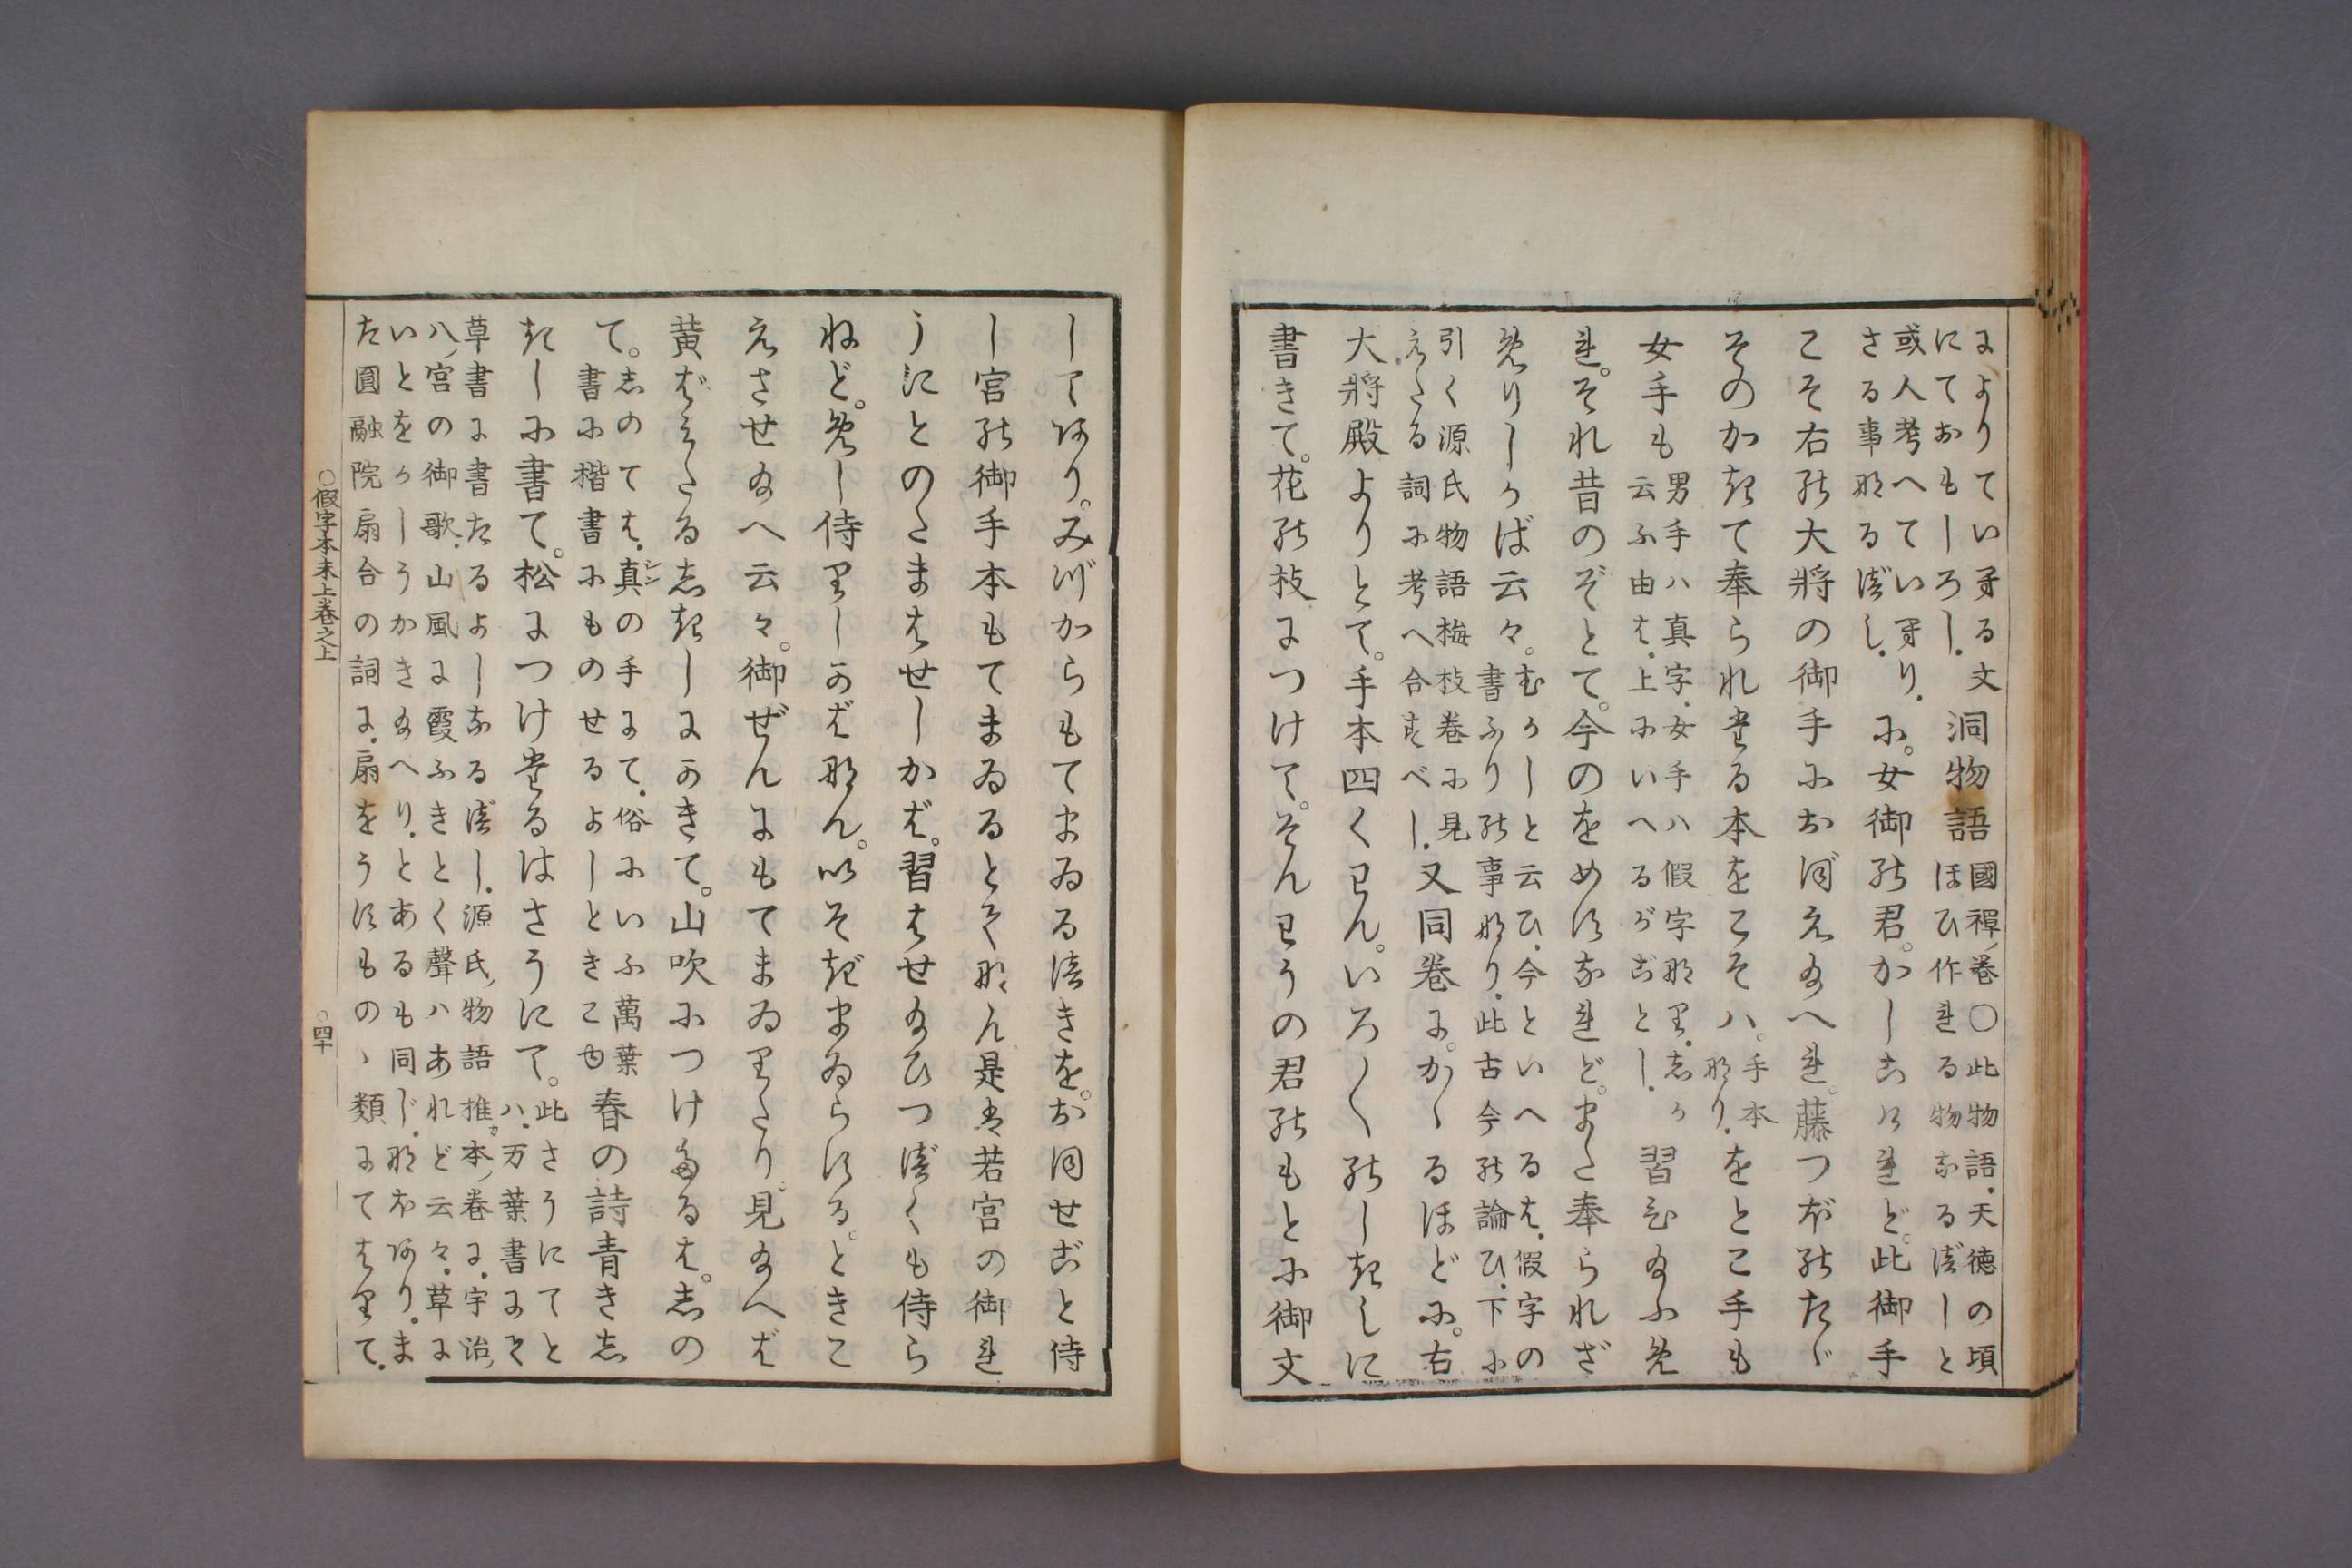 によりていへる文
にておもしろし。
洞物語
國禪ノ巻〇此物語、天徳の頃
ほひ作れる物なるべしと
或人考へていへり、
さる事なるべし、
に。女御の君。かしこけれど。此御手
こそ右の大將の御手におぼえ給へれ。藤つぼのたゞ
そのかきて奉られたる本をこそハ。
手本
なり、
をとこ手も
女手も
男手ハ真字、女手ハ假字なり、志か
云ふ由は、上にいへるがごとし、
習ひ給ふめ
れ。それ昔のぞとて。今のをめすなれど。また奉られざ
めりしかば云々。
むかしと云ひ、今といへるは、假字の
書ふりの事なり、此古今の論ひ、下に
引く源氏物語梅枝巻に見
えたる詞に考へ合すべし、
又同巻に。かゝるほどに。右
大將殿よりとて。手本四くわん。いろ〳〵のしきしに
書きて。花の枝につけて。そんわうの君のもとに御文
してあり。みづからもてまゐるべきを。おほせごと侍
し宮の御手本もてまゐるとてなん是は若宮の御れ
うにとのたまはせしかば。習はせ給ひつべくも侍ら
ねど。めし侍りしかばなん。いそぎまゐらする。ときこ
えさせ給へ云々。御ぜんにもてまゐりたり。見給へば
黄ばみたる志きしにかきて。山吹につけたるは。志の
て。
志のては、真の手にて、俗にいふ萬葉
書に楷書にものせるよしときこゆ
春の詩青き志
きしに書て。松につけたるはさうにて。
此さうにてと
ハ、万葉書にそ
草書に書たるよしなるべし、源氏ノ物語椎ガ本ノ巻に、宇治ノ
八ノ宮の御歌、山風に霞ふきとく聲ハあれど云々、草に
いとをかしうかき給へり、とあるも同じ、なほあり、ま
た圓融院扇合の詞に、扇をうすものゝ類にてはりて、
〇假字本末上巻之上
〇四十